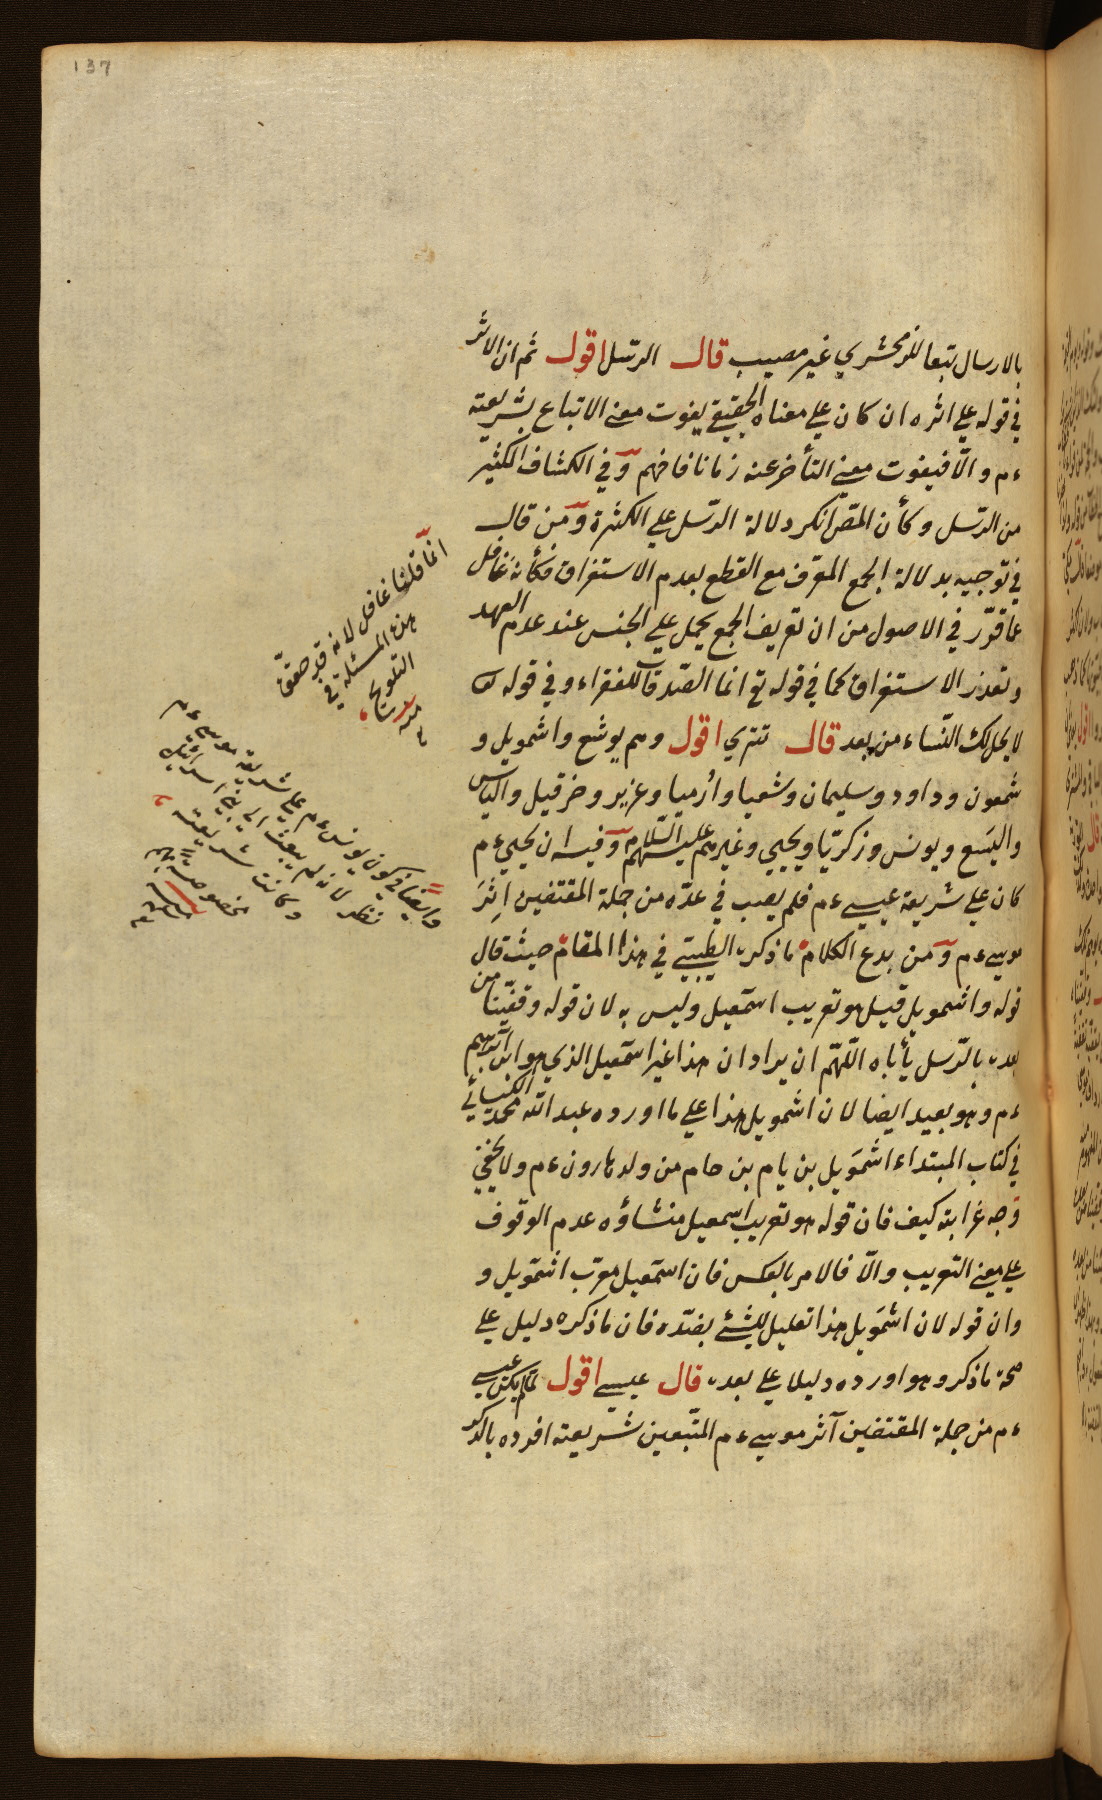 137
بالارسال تبعا للزمخشري غير مصيب قال الرسل اقول ثم ان الاثر
في قوله على اثره ان كان على معناه الحقيقي يفوت معنى الاتباع بشريعته
ءم والّا فيفوت معنى التأخر عنه زمانا فافهم وفي الكشاف الكثير
من الرّسل وكأن المصّ انكر دلالة الرّسل على الكثرة ومن قال
في توجيه بدلالة الجمع المعرّف مع القطع بعدم الاستغراق فكأنه غافل
عما قرّر في الاصول من ان تعريف الجمع يحمل على الجنس عند عدم العهد
وتعذر الاستغراق كما في قوله تع انما الصّدقات للفقراء وفي قوله
لا يحل لك النّساء من بعد قال تترى اقول وهم يوشع واشمويل و
شمعون وداود وسليمان وشعيا وارميا وعزير وحزقيل والياس
واليسَع ويونس وزكريّا ويحيى وغيرهم عليهم السّلام وفيه ان يحيى ءم
كان على شريعة عيسى ءم فلم يصب في عدّه من جملة المقتفين اِثرَ
موسى ءم ومن بدع الكلام ما ذكره الطّيبي في هذا المقام حيث قال
قوله واشمويل قيل هو تعريب اسمعيل وليس به لان قوله وقفّينا من
بعده بالرّسل يأباه اللّهمّ ان يراد ان هذا غير اسمعيل الذي هو ابن ابرهيم
ءم وهو بعيد ايضا لان اشمويل هذا على ما اورده عبد الله محمد الكسائي
في كتاب المبتداء اشمَويل بن يام بن حام من ولد هارون ءم ولا يخفى
وجه غرابته كيف فان قوله هو تعريب اسمعيل منشاؤه عدم الوقوف
على معنى التعريب والّا فالامر بالعكس فان اسمعيل معرّب اشمويل و
وان قوله لان اشمَويل هذا تعليل للشئ بضدّه فان ما ذكره دليل على
صحة ما ذكر وهو اورده دليلا على بعده قال عيسى اقول لمّا لم يكن عيسى
ءم من جملة المقتفين آثر موسى ءم المتّبعين شريعته افرده بالذكر
انما قلنا غافل لانه قد حقّق
هذه المسئلة في
التلويح
منه
وايضا في كون يونس ءم على شريعة موسى ءم
نظر لانه لم يبعث الى بني اسرائيل
وكانت شريعته
مخصوصة بهم